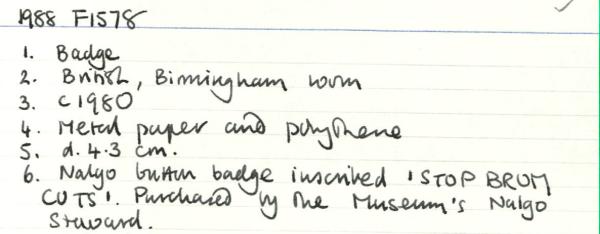 1988 F1578
1. Badge
2. British, Birmingham room
3. C 1980
4. Metal paper and polythene
5. d. 4.3 cm.
6. Nalgo button badge inscribed 'STOP BRUM
CUTS'. Purchased by the Museum's Nalgo
Steward.